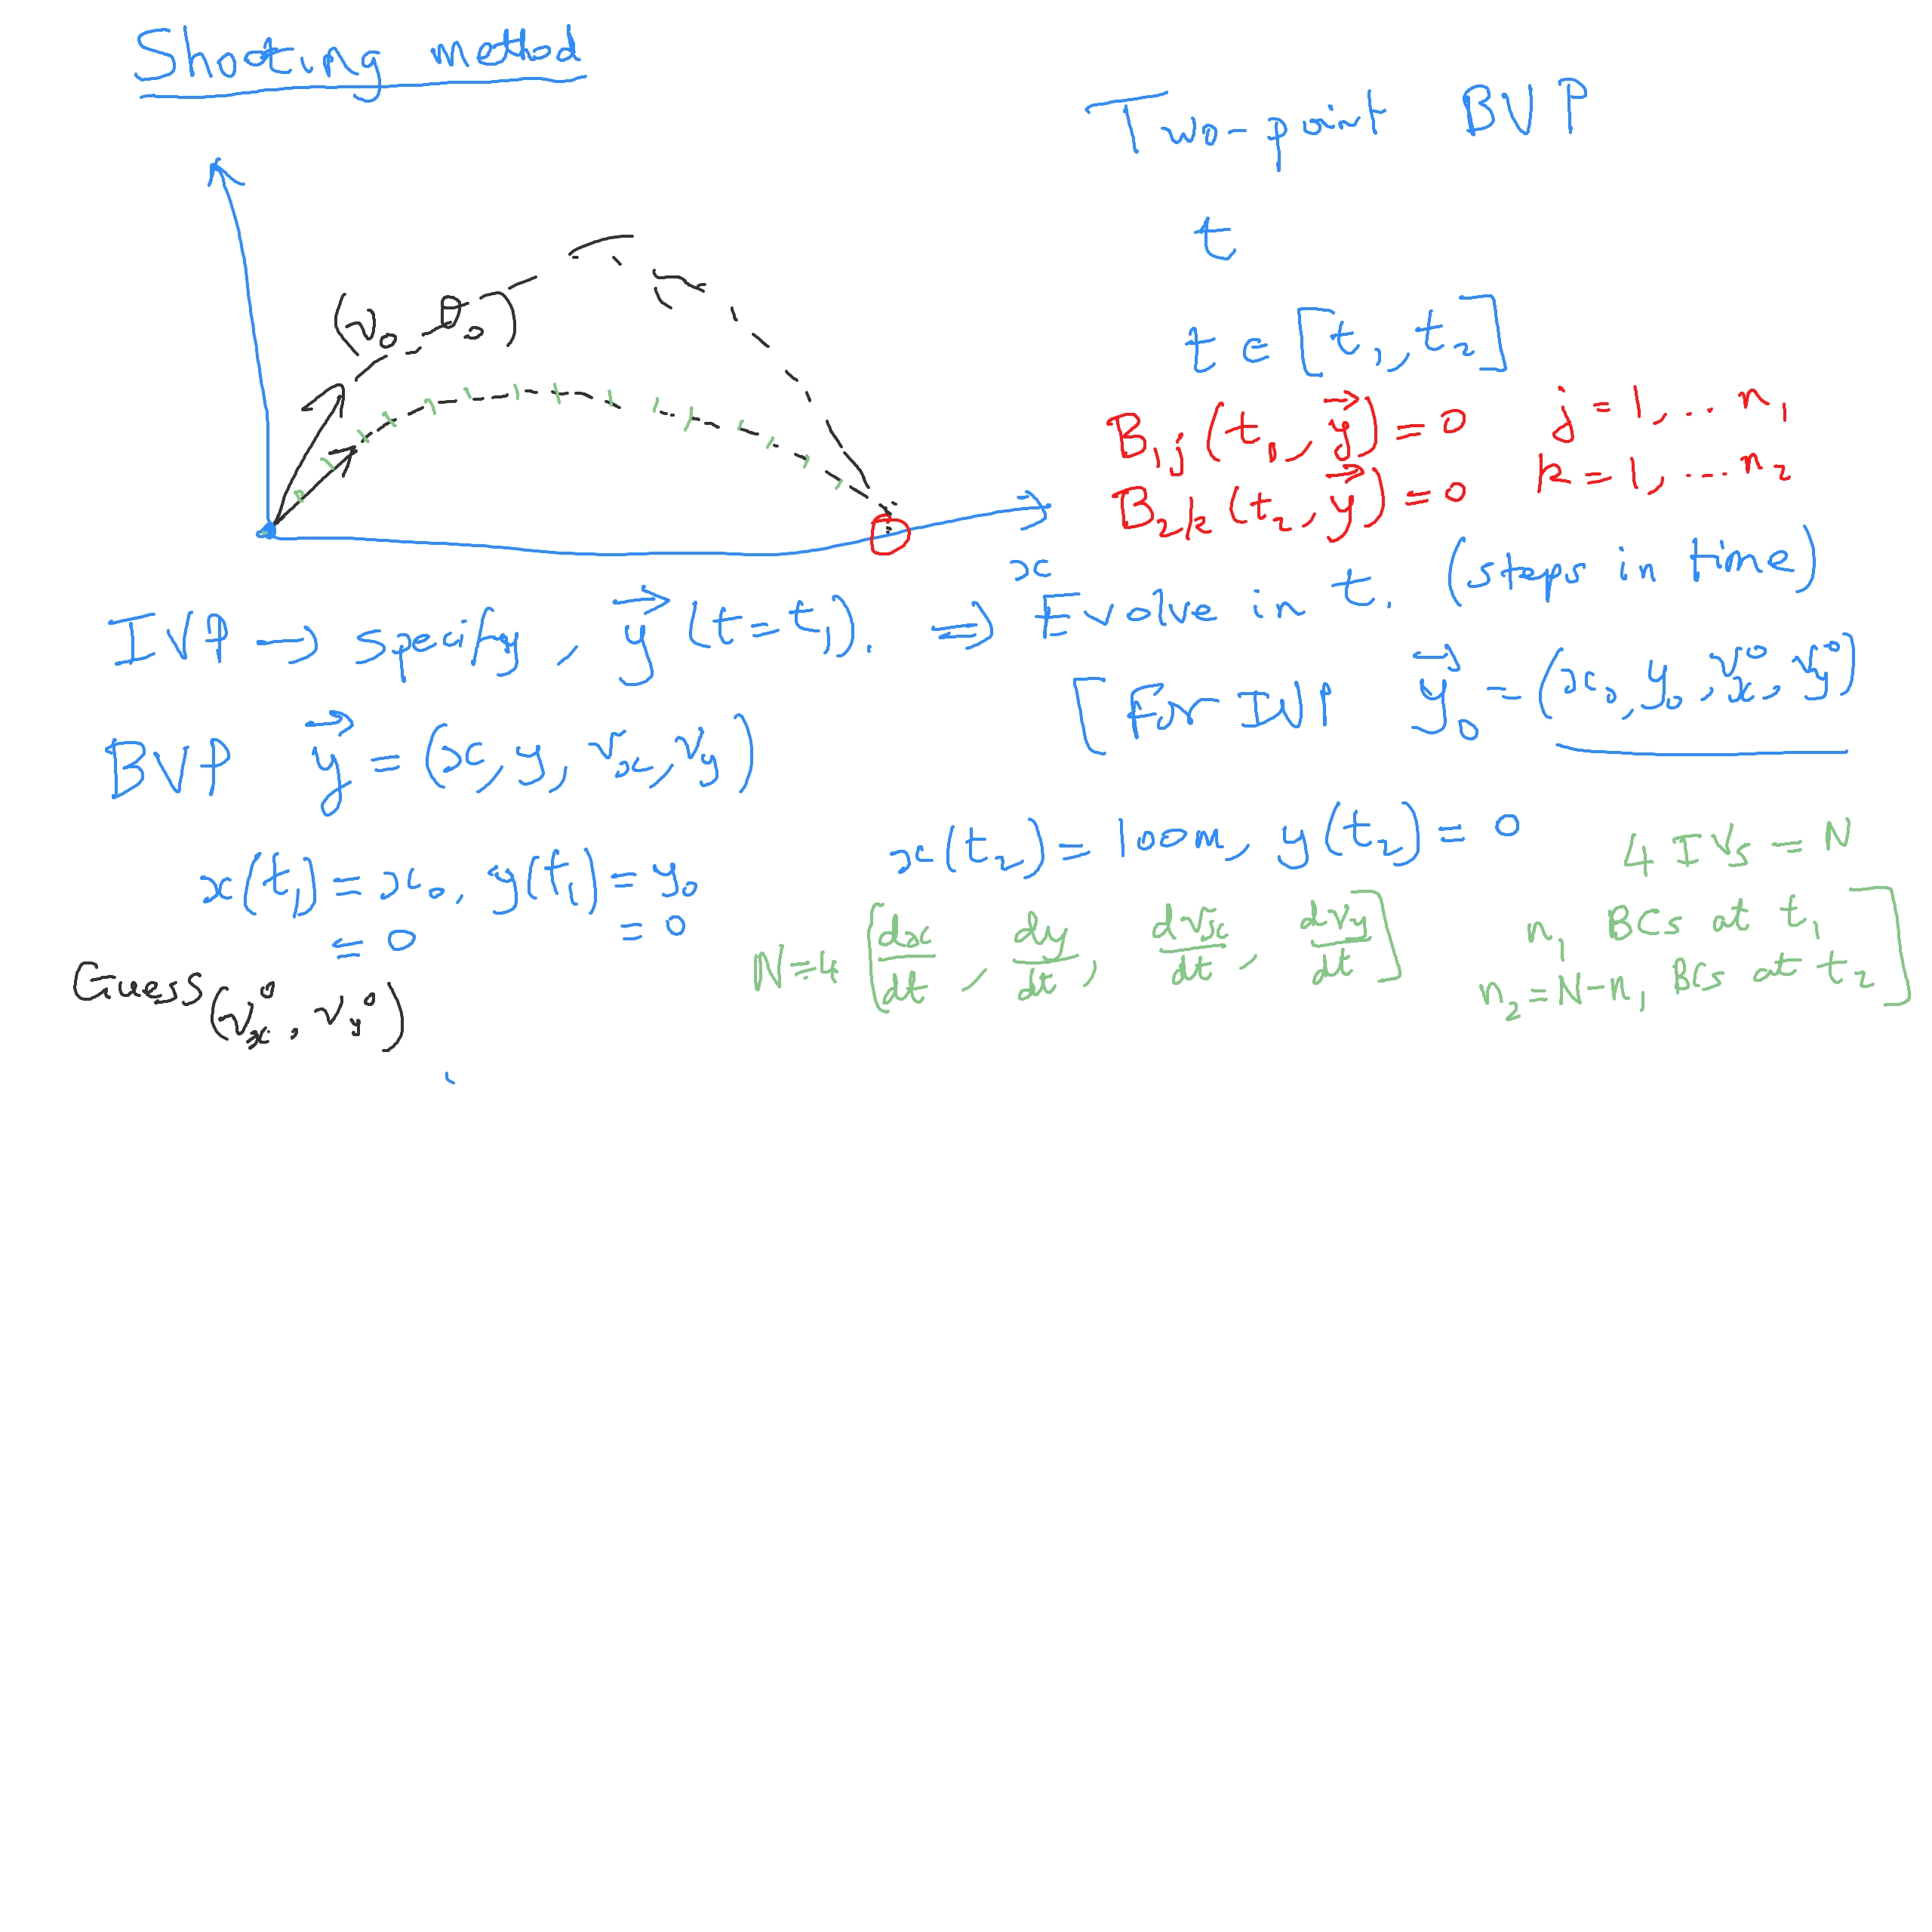 Shooting method
Two-point BVP
t
t ∈ [t₁, t₂]
(v₀, θ₀)
B₁ⱼ(t₁, y⃗) = 0 j = 1, ... n₁
B₂ₖ(t₂, y⃗) = 0 k = 1, ... n₂
x
IVP → specify, y⃗(t = t₁). ⇒ Evolve in t. (steps in time)
[For IVP y⃗₀ = (x₀, y₀, vₓ⁰, v_y⁰)
BVP y⃗ = (x, y, vₓ, v_y)
x(t₁) = x₀, y(t₁) = y₀ x(t₂) = 100m, y(t₂) = 0
= 0 = 0
4 IVs = N
N = 4 [dx/dt, dy/dt, dvₓ/dt, dv_y/dt]
n₁ BCs at t₁
n₂ = N - n₁ BCs at t₂]
Guess (vₓ⁰, v_y⁰)